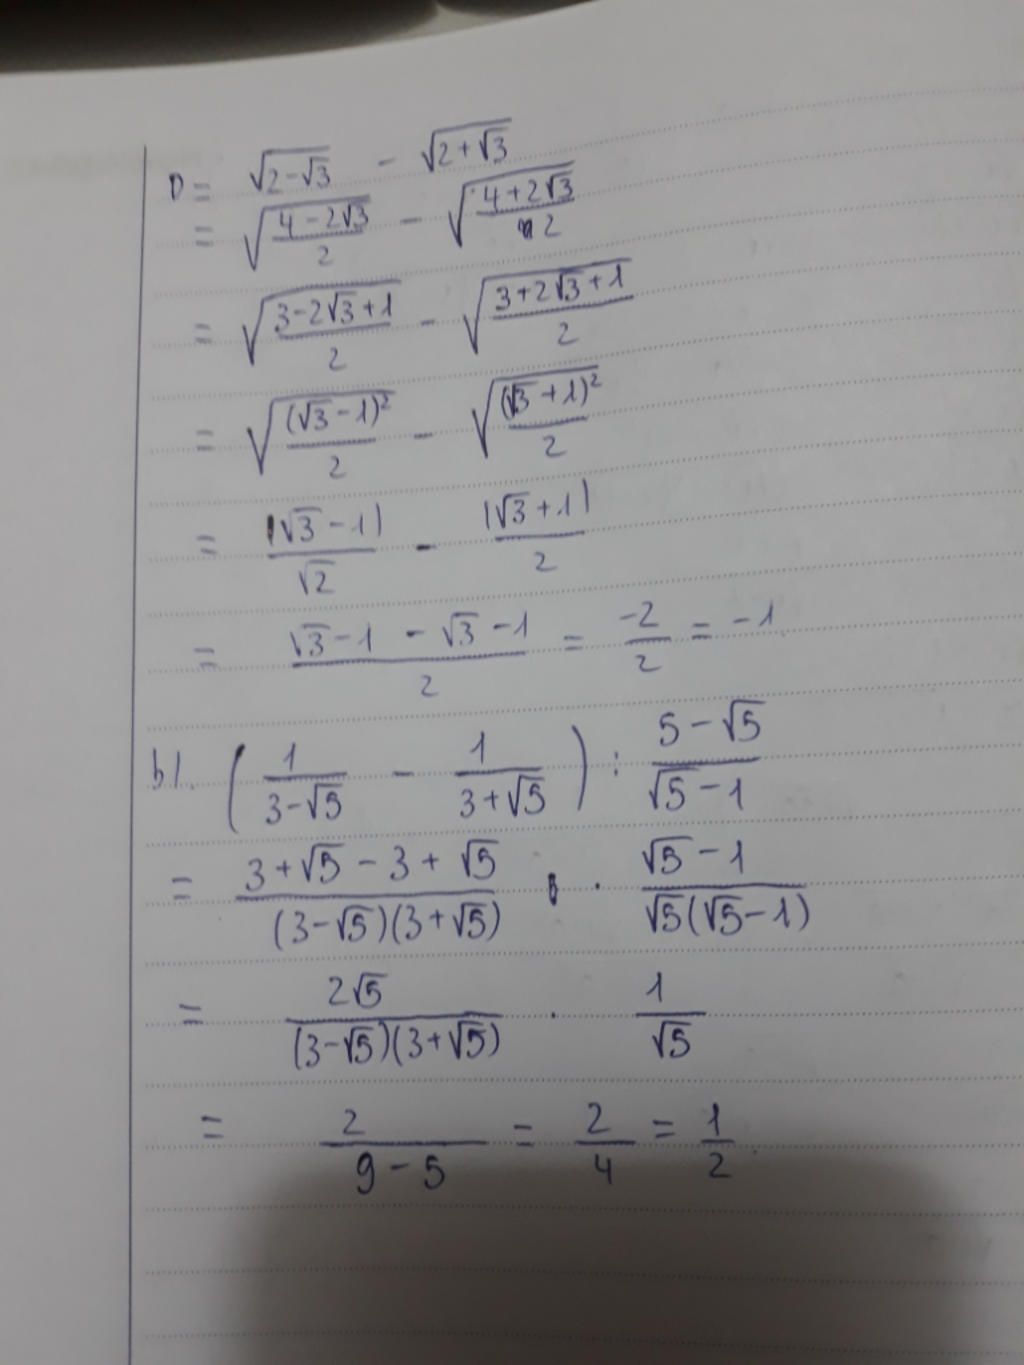 D = √(2-√3) - √(2+√3)
= √((4-2√3)/2) - √((4+2√3)/2)
= √((3-2√3+1)/2) - √((3+2√3+1)/2)
= √((√3-1)²/2) - √((√3+1)²/2)
= |√3-1|/√2 - |√3+1|/2
= (√3-1 - √3-1)/2 = -2/2 = -1
b/. (1/(3-√5) - 1/(3+√5)) : (5-√5)/(√5-1)
= (3+√5-3+√5)/((3-√5)(3+√5)) · (√5-1)/(√5(√5-1))
= 2√5/((3-√5)(3+√5)) · 1/√5
= 2/(9-5) = 2/4 = 1/2.